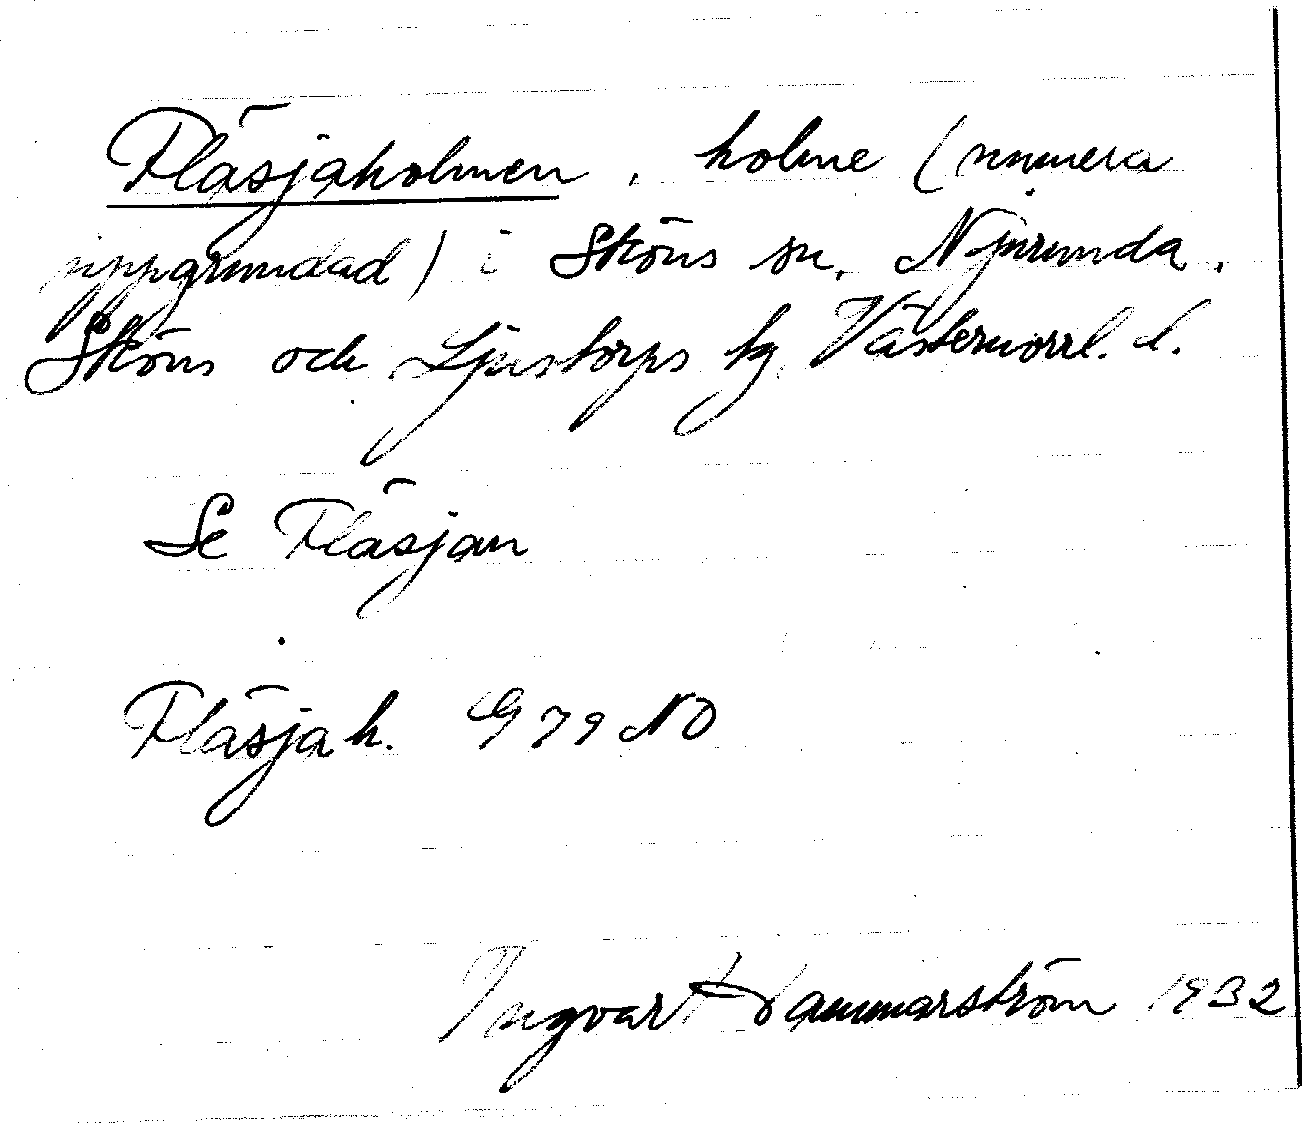 Fläsjaholmen, holme (numera
uppgrundad) i Sköns sn, Njurunda,
Sköns och Ljustorps tg, Västernorrl. l.
Se Fläsjan
Fläsjah. G 79 NO
Ingvar Hammarström 1932